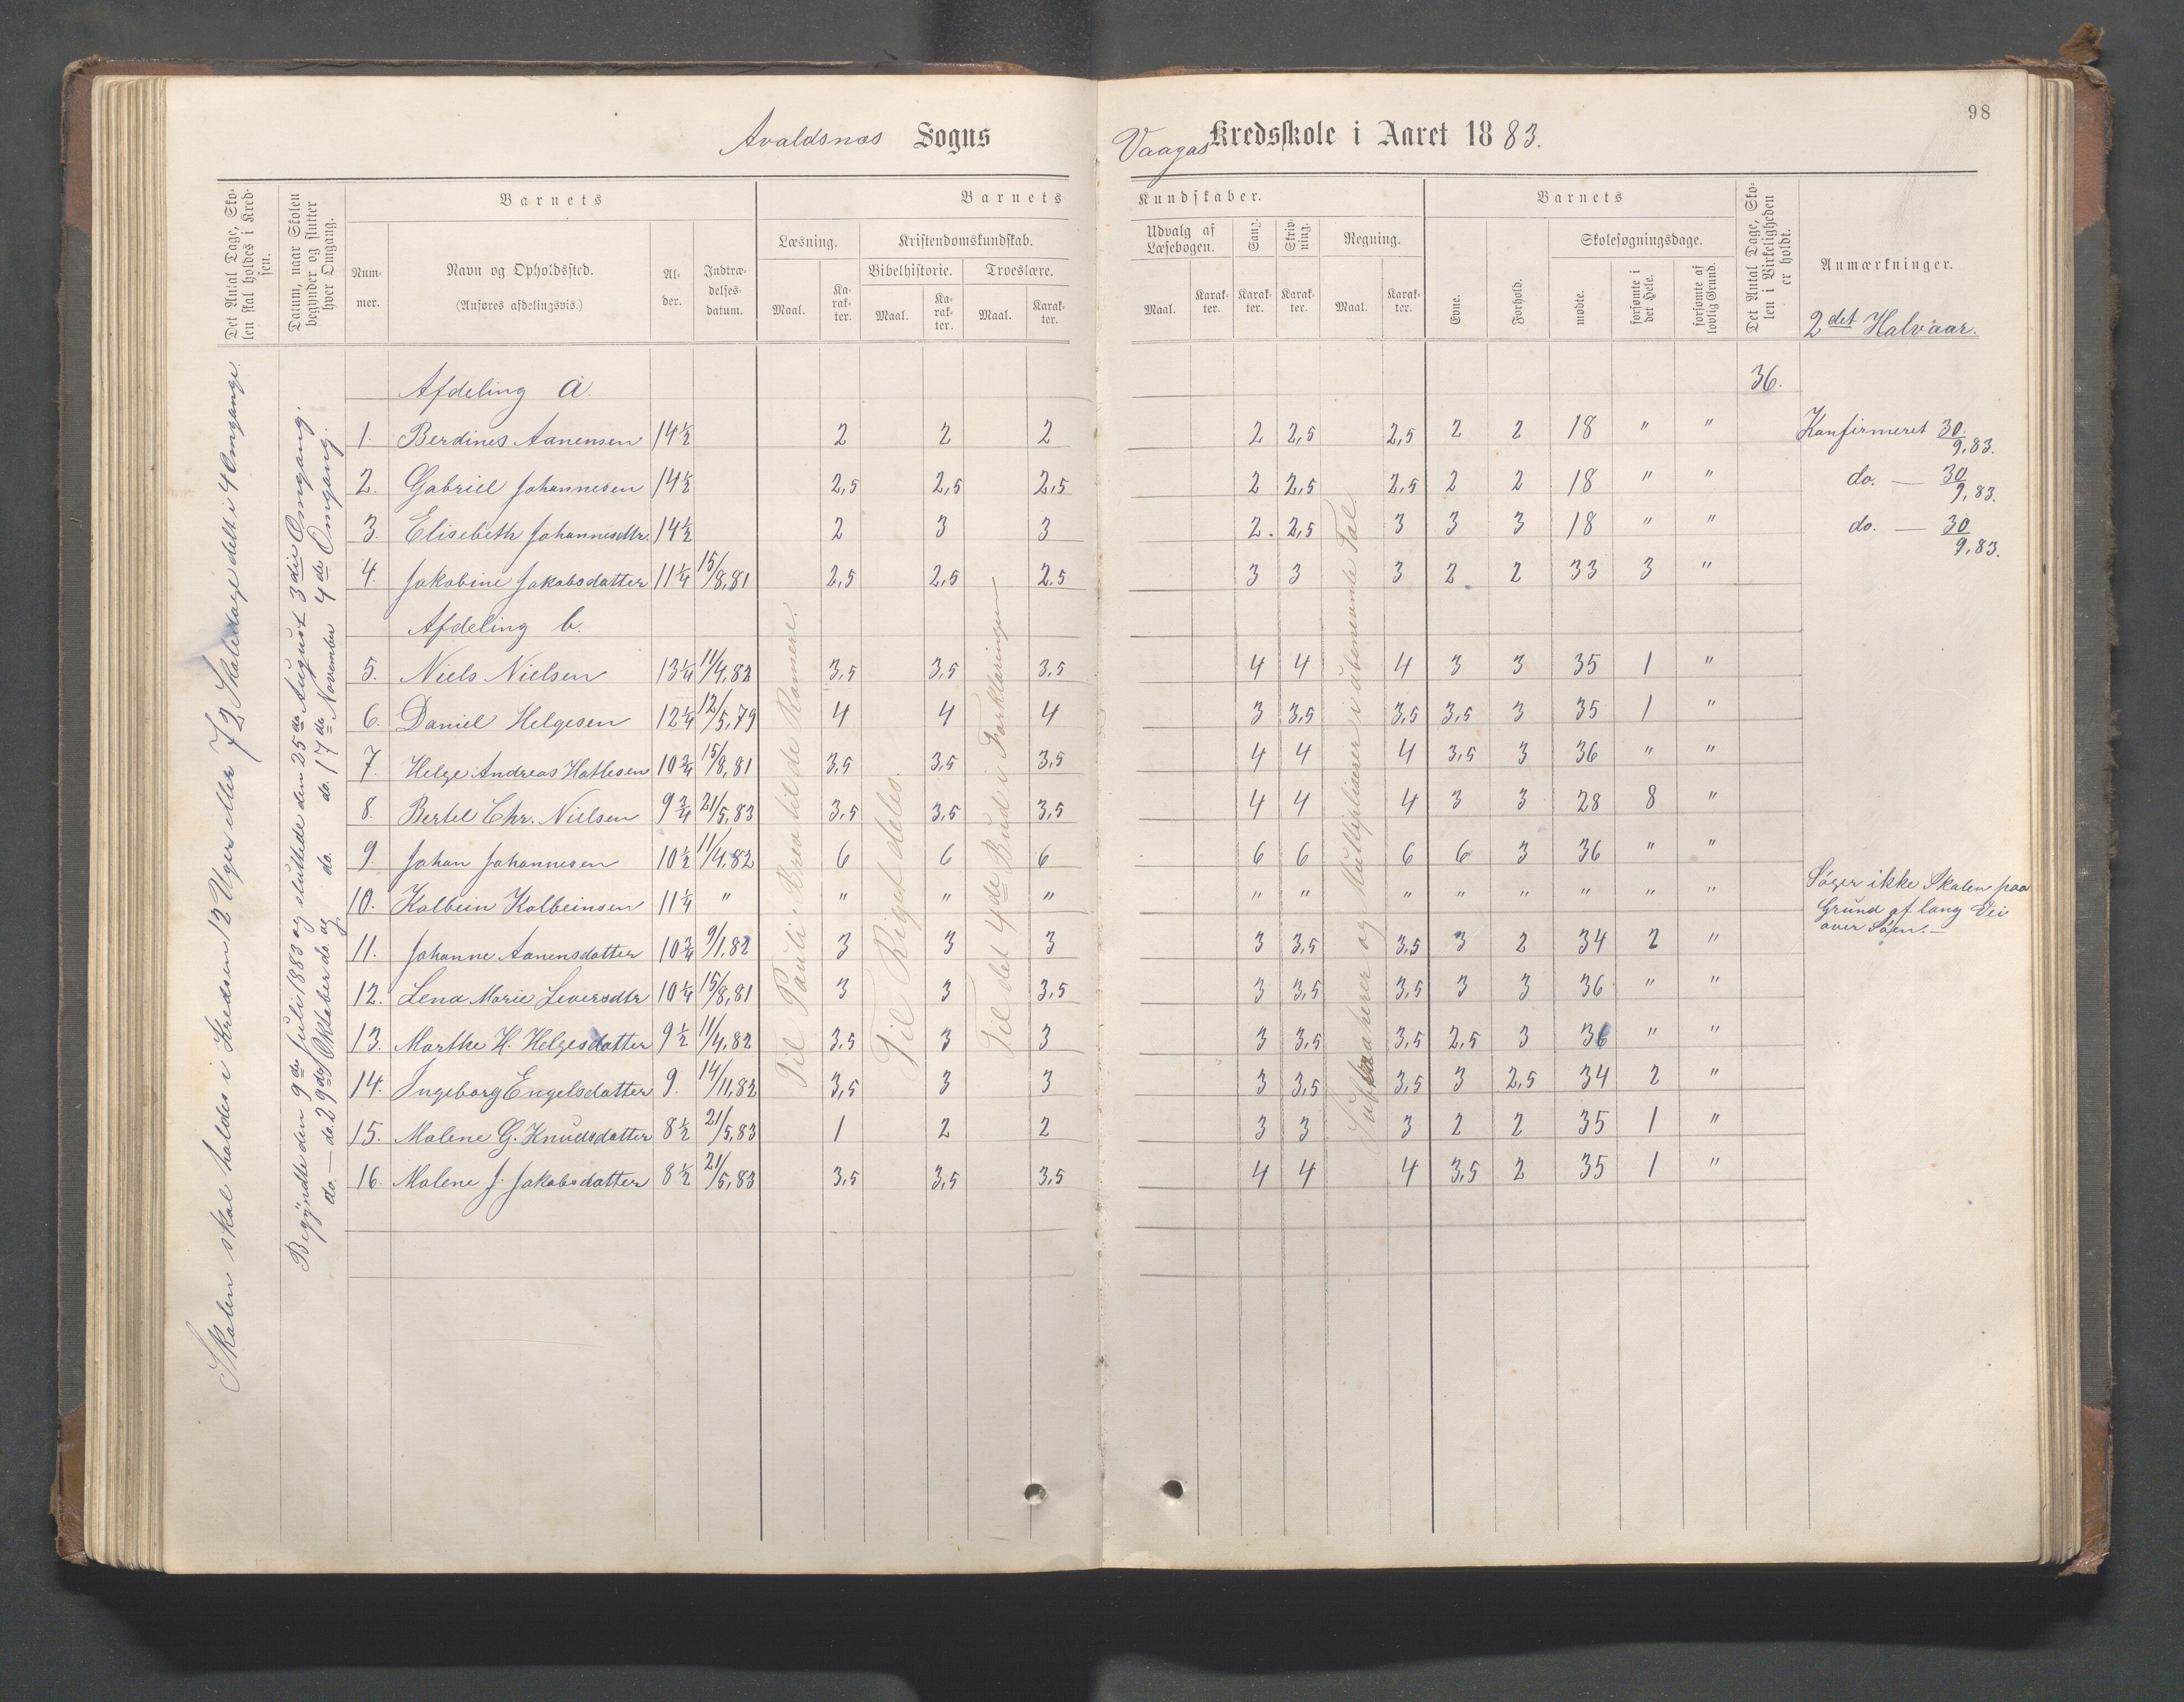 98
Avaldsnæs Sogns
Vaagas Kredsskole i Aaret 1883.
Det Antal Dage, Sko-
len skal holdes i Kred-
sen.
Datum, naar Skolen
begynder og slutter
hver Omgang.
Barnets
Num-
mer.
Navn og Opholdssted.
(Anføres afdelingsvis.)
Al-
der.
Indtræ-
delses-
datum.
Barnets
Læsning.
Maal.
Ka-
rak-
ter.
Kristendomskundskab.
Bibelhistorie.
Maal.
Ka-
rak-
ter.
Troeslære.
Maal.
Karak-
ter.
Kundskaber.
Udvalg af
Læsebogen.
Maal.
Karak-
ter.
Sang.
Karak-
ter.
Skriv-
ning.
Karak-
ter.
Regning.
Maal.
Karak-
ter.
Barnets
Evne.
Forhold.
Skolesøgningsdage.
mødte.
forsømte i
det Hele.
forsømte af
lovlig Grund.
Det Antal Dage, Sko-
len i Virkeligheden
er holdt.
Anmærkninger.
2det Halvaar.
Skolen skal holdes i Kredsen 12 Uger eller 72 Skoledage delt i 4 Omgange.
Begyndte den 9de Juli 1883 og sluttede den 25de August 3die Omgang.
do. — do. 29de Oktober do. og do. do. 17de November 4de Omgang.
Afdeling a. 36.
1. Berdines Aanensen 14½ 2 2 2 2 2,5 2,5 2 2 18 " " Konfirmeret 30/9,83.
2. Gabriel Johannesen 14½ 2,5 2,5 2,5 2 2,5 2,5 2 2 18 " " do. — 30/9,83.
3. Elisebeth Johannesdtr. 14½ 2 3 3 2. 2,5 3 3 3 18 " " do. — 30/9,83.
4. Jakobine Jakobsdatter 11¼ 15/8,81 2,5 2,5 2,5 3 3 3 2 2 33 3 "
Afdeling b.
5. Niels Nielsen 13¼ 11/4,82 3,5 3,5 3,5 4 4 4 3 3 35 1 "
6. Daniel Helgesen 12¼ 12/5,79 4 4 4 3 3,5 3,5 3,5 3 35 1 "
7. Helge Andreas Hatlesen 10¾ 15/8,81 3,5 3,5 3,5 4 4 4 3,5 3 36 " "
8. Bertel Chr. Nielsen 9¾ 21/5,83 3,5 3,5 3,5 4 4 4 3 3 28 8 "
9. Johan Johannesen 10½ 11/4,82 6 6 6 6 6 6 6 3 36 " "
10. Kolbein Kolbeinsen 11¼ " " " " " " " " " " " " Søger ikke Skolen paa
Grund af lang Vei
over Søen. —
11. Johanne Aanensdatter 10¾ 9/1,82 3 3 3 3 3,5 3,5 3 2 34 2 "
12. Lena Marie Seversdtr 10¼ 15/8,81 3 3 3,5 3 3,5 3,5 3 3 36 " "
13. Marthe H. Helgesdatter 9½ 11/4,82 3,5 3 3 3 3,5 3,5 2,5 3 36 " "
14. Ingeborg Engelsdatter 9. 14/11,82 3,5 3 3 3 3,5 3,5 3 2,5 34 2 "
15. Malene G. Knudsdatter 8½ 21/5,83 1 2 2 3 3 3 2 2 35 1 "
16. Malene J. Jakobsdatter 8½ 21/5,83 3,5 3,5 3,5 4 4 4 3,5 2 35 1 "
Til Pauli Brev til de Romere.
Til Riget deles.
Til det 4de Bud i Forklaringen
Subtraherer og Multipliserer i ubenævnte Tal.